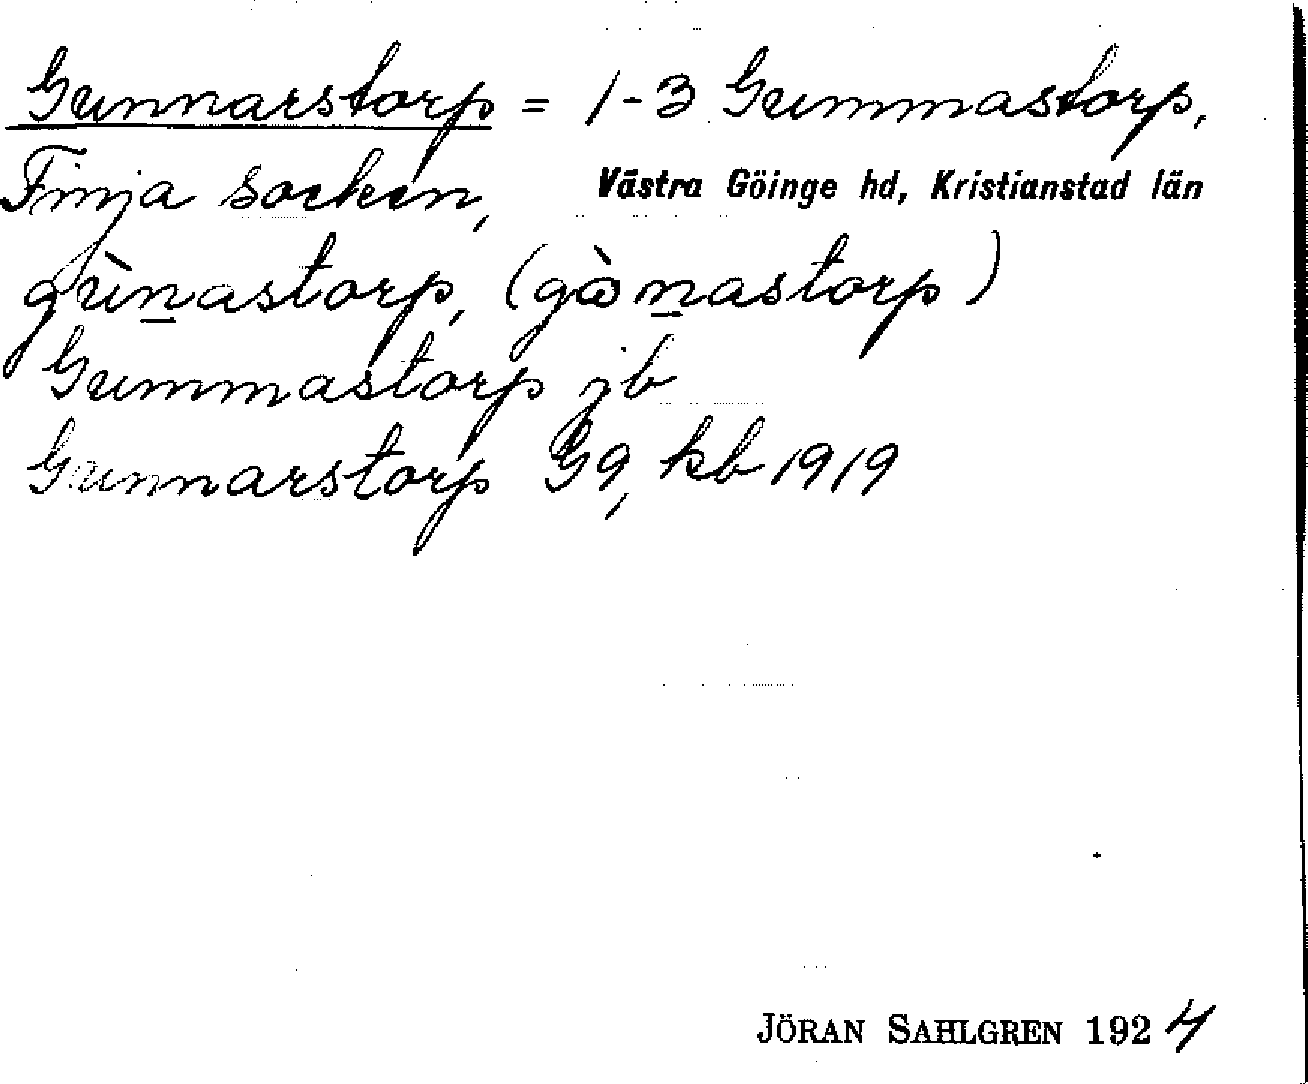 Gunnarstorp = 1-3 Gummastorp,
Finja socken, Västra Göinge hd, Kristianstad län
gùn̲astorp, (gὼn̲astorp)
Gummastorp jb
Gunnarstorp G9, kb 1919
JÖRAN SAHLGREN 1924